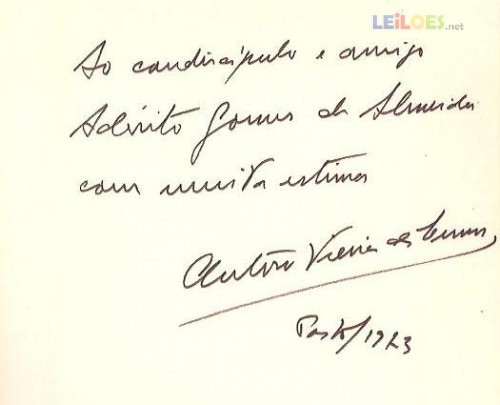 LEiLOES.net
Ao condiscípulo e amigo
Adérito Gomes de Almeida
com muita estima
António Vieira de
Porto/1973